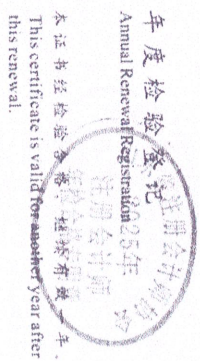 年度检验登记
Annual Renewal Registration
本证书经检验合格，继续有效一年。
This certificate is valid for another year after
this renewal.
注册会计师
2025年
注册会计师